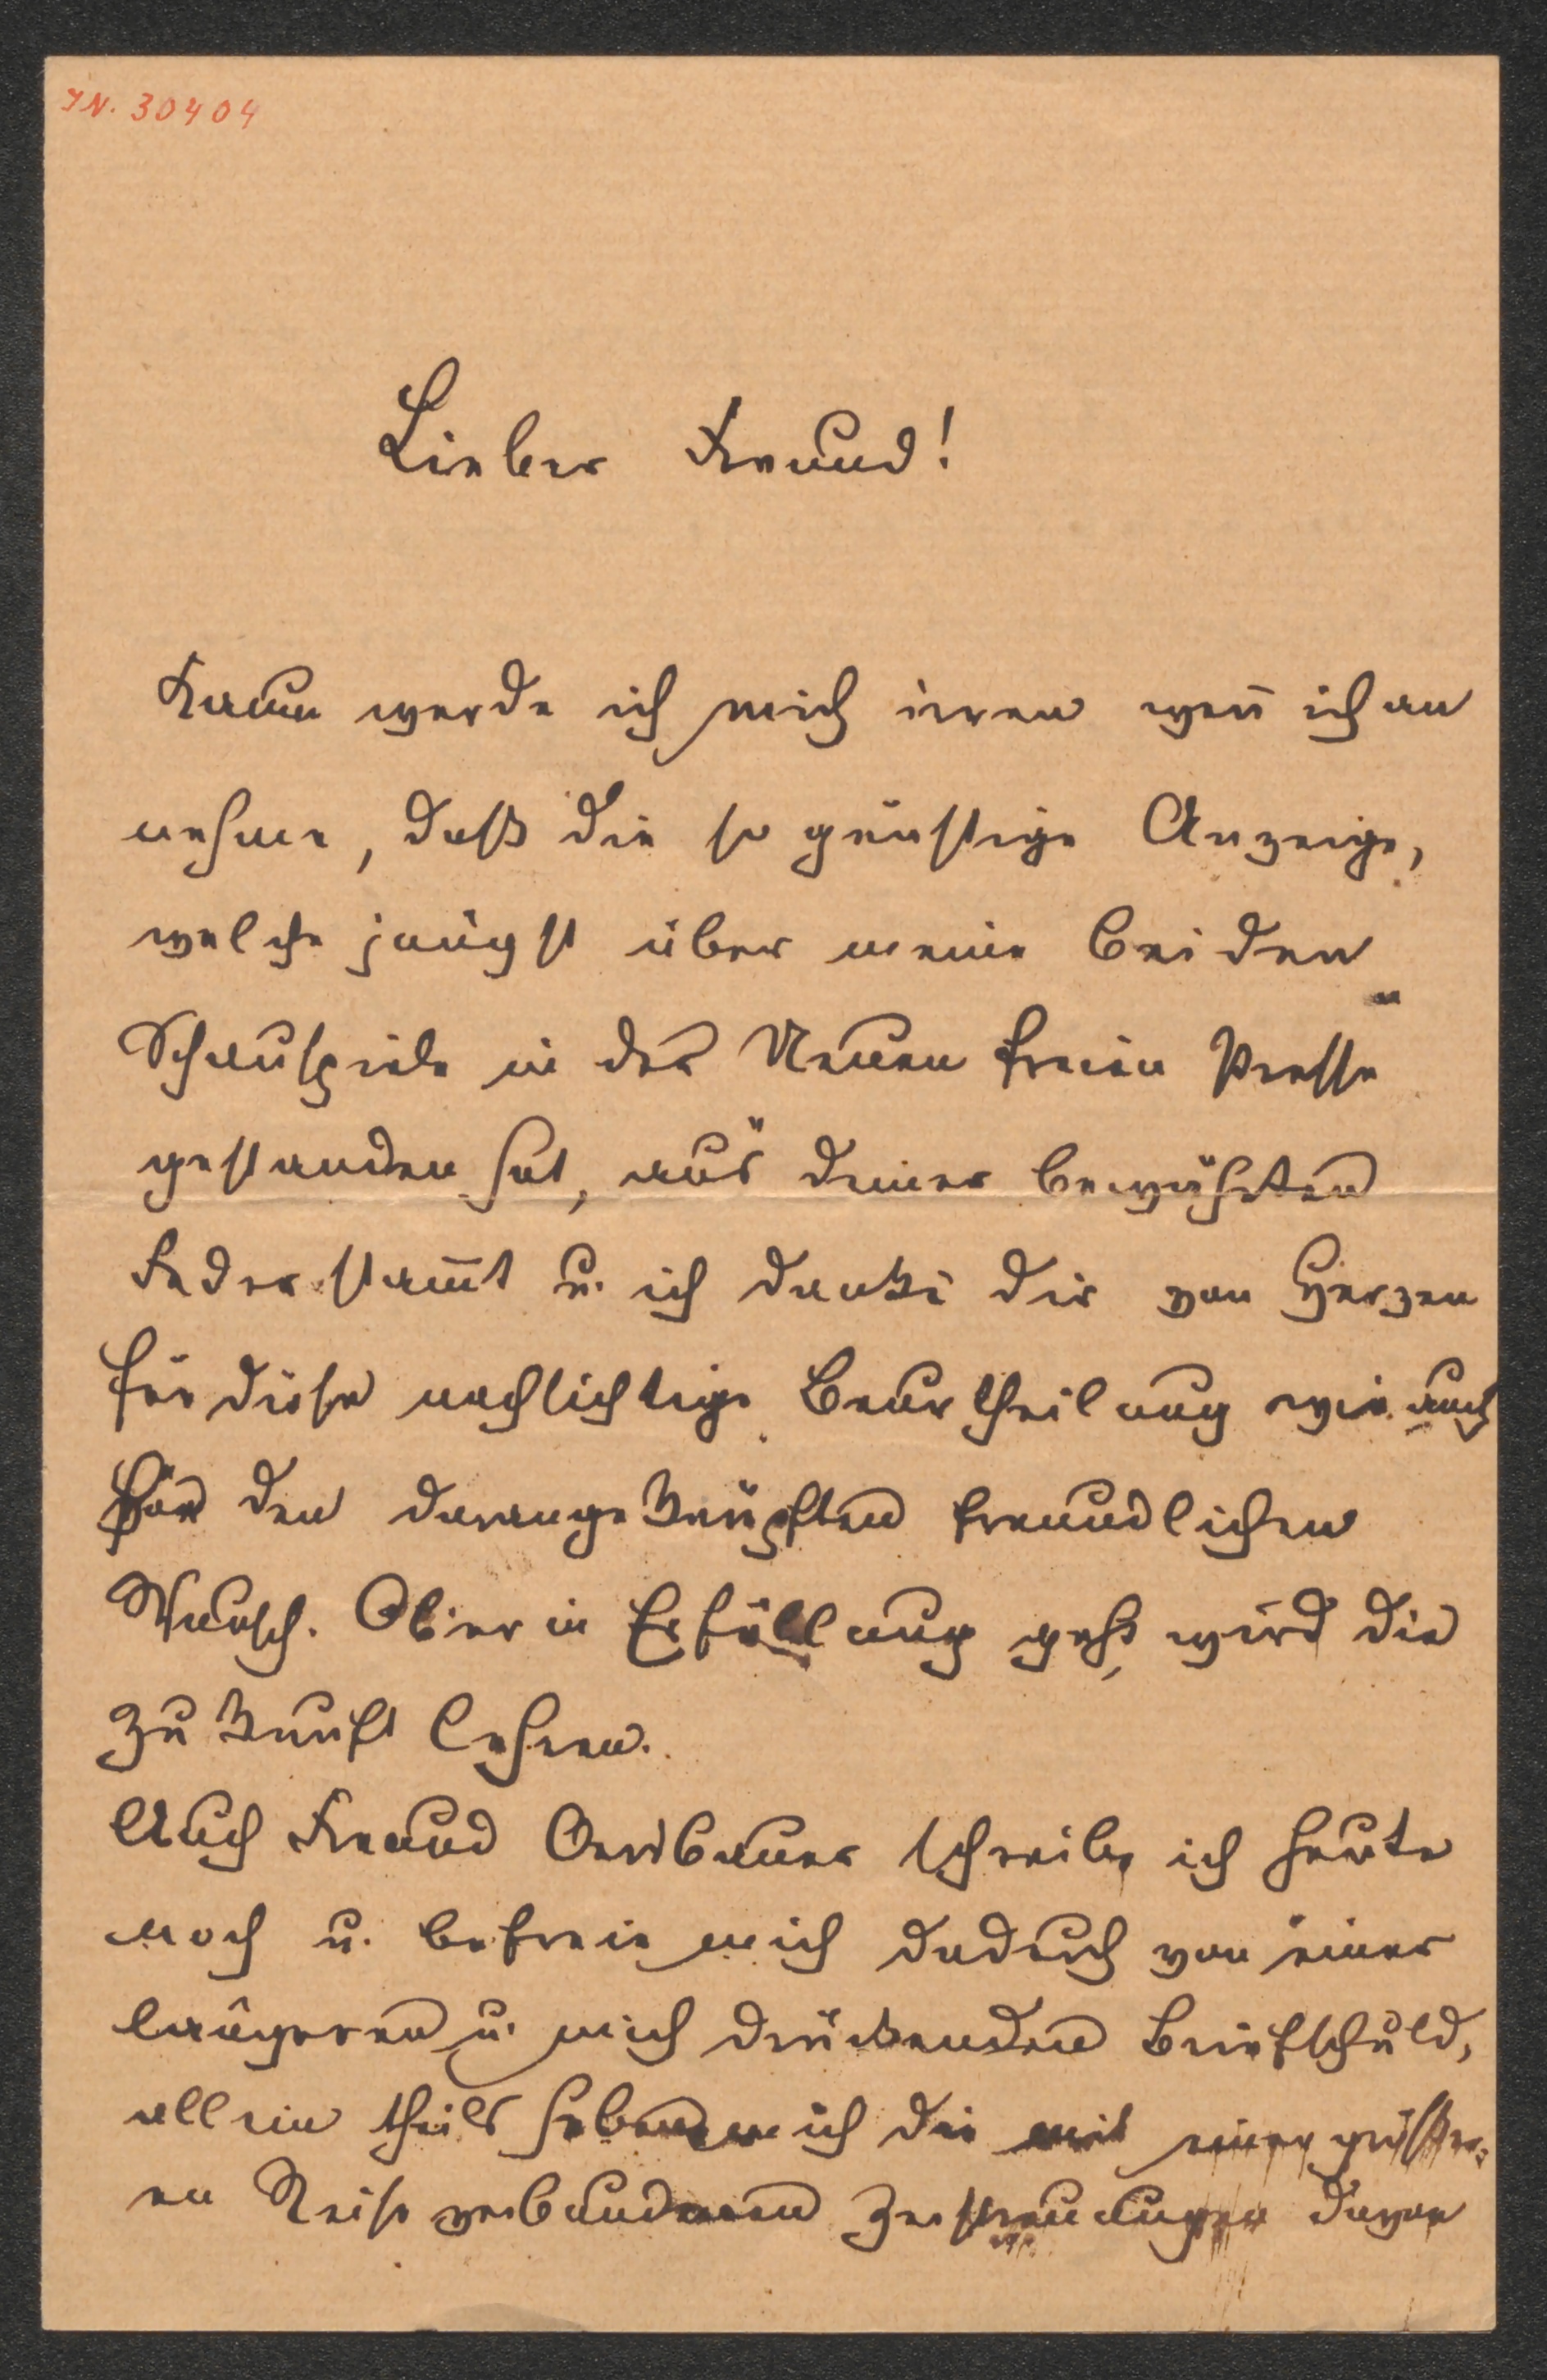 IN. 30404
Lieber Freund!
Kaum werde ich mich irren weñ ich an
nehme, daß die so günstige Anzeige,
welche jüngst über meine beiden
Schauspiele in der Neuen freien Presse
gestanden hat, aus deiner bewährten
Feder stam̄t u. ich danke dir von Herzen
für diese nachsichtige Beurtheilung wie auch
für den daran geknüpften freundlichen
Wunsch. Ob er in Erfüllung geht, wird die
Zukunft lehren.
Auch Freund schreibe ich heute
noch u. befreie mich dadurch von einer
längeren u. mich drückenden Briefschuld,
allein theils haben mich die mit einer größer-
en Reise verbundenen Zerstreuungen davon